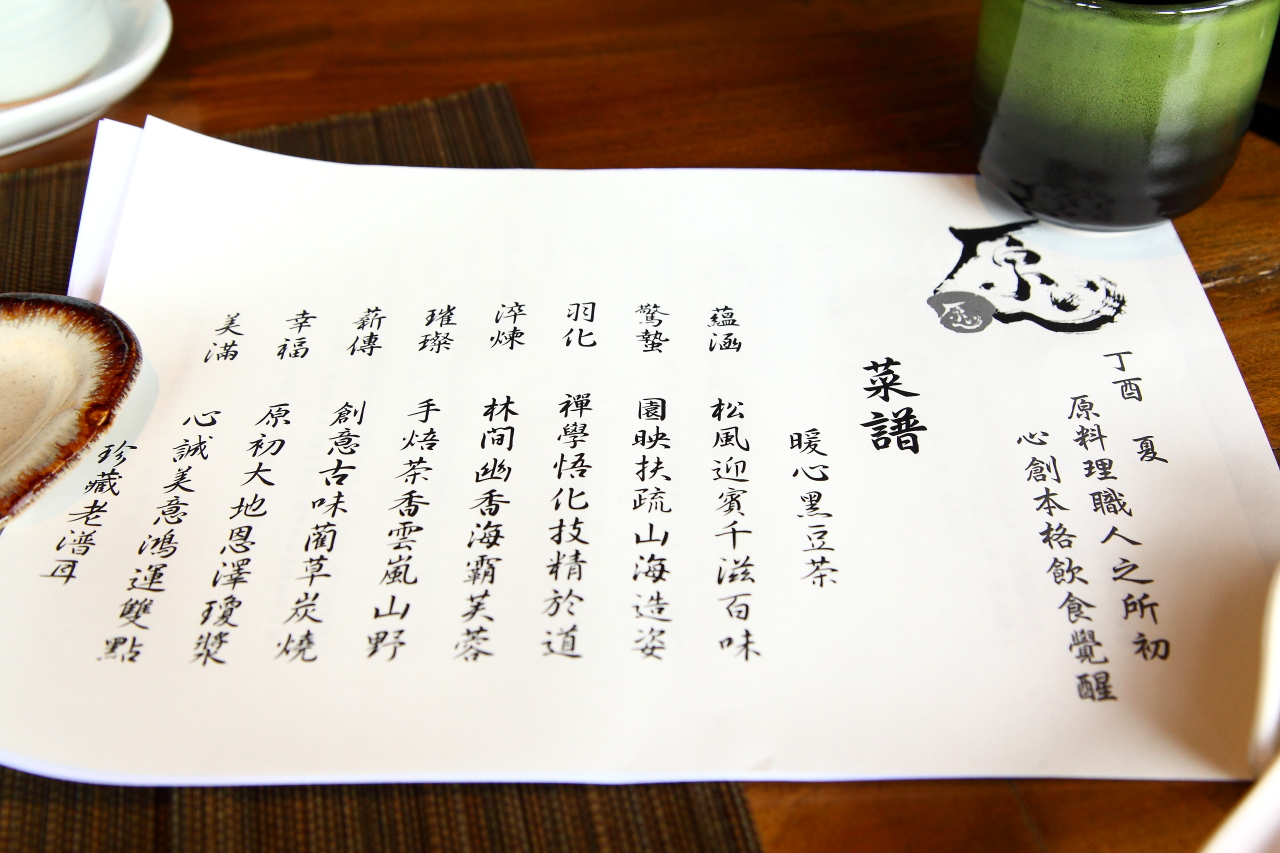 丁酉 夏
原料理職人之所初
心創本格飲食覺醒
菜譜
暖心黑豆茶
蘊涵 松風迎賓千滋百味
驚蟄 園映扶疏山海造姿
羽化 禪學悟化技精於道
淬煉 林間幽香海霸芙蓉
璀璨 手焙茶香雲嵐山野
薪傳 創意古味藺草炭燒
幸福 原初大地恩澤瓊漿
美滿 心誠美意鴻運雙點
珍藏老潽耳